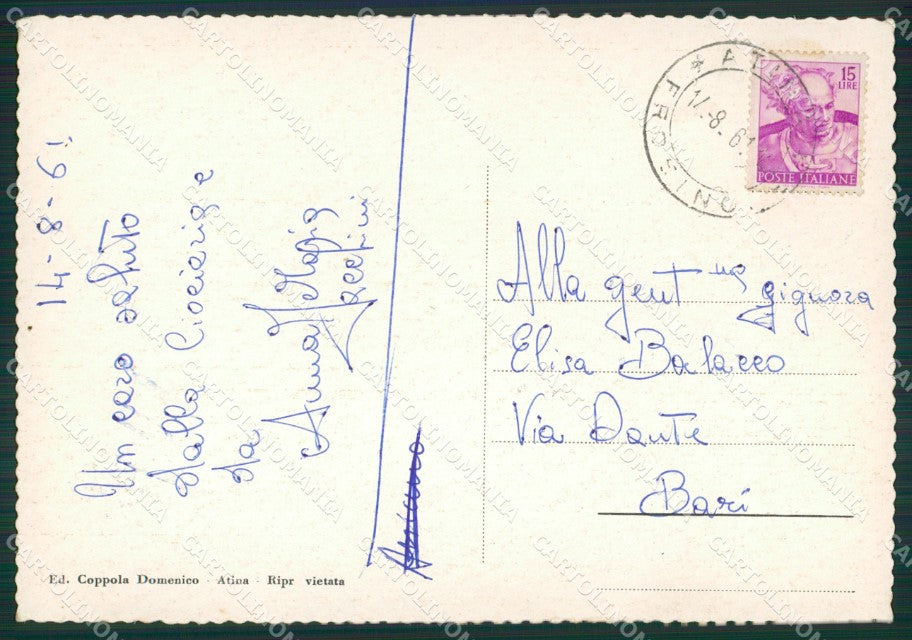 14-8-61
Un caro saluto
dalla Ciociaria e
da Anna Maria
Alla gent.ma Signora
Elisa Balacco
Via Dante
Bari
Ed. Coppola Domenico - Atina - Ripr vietata
15
LIRE
POSTE ITALIANE
FROSINON
-8.61
CARTOLINOMANIA